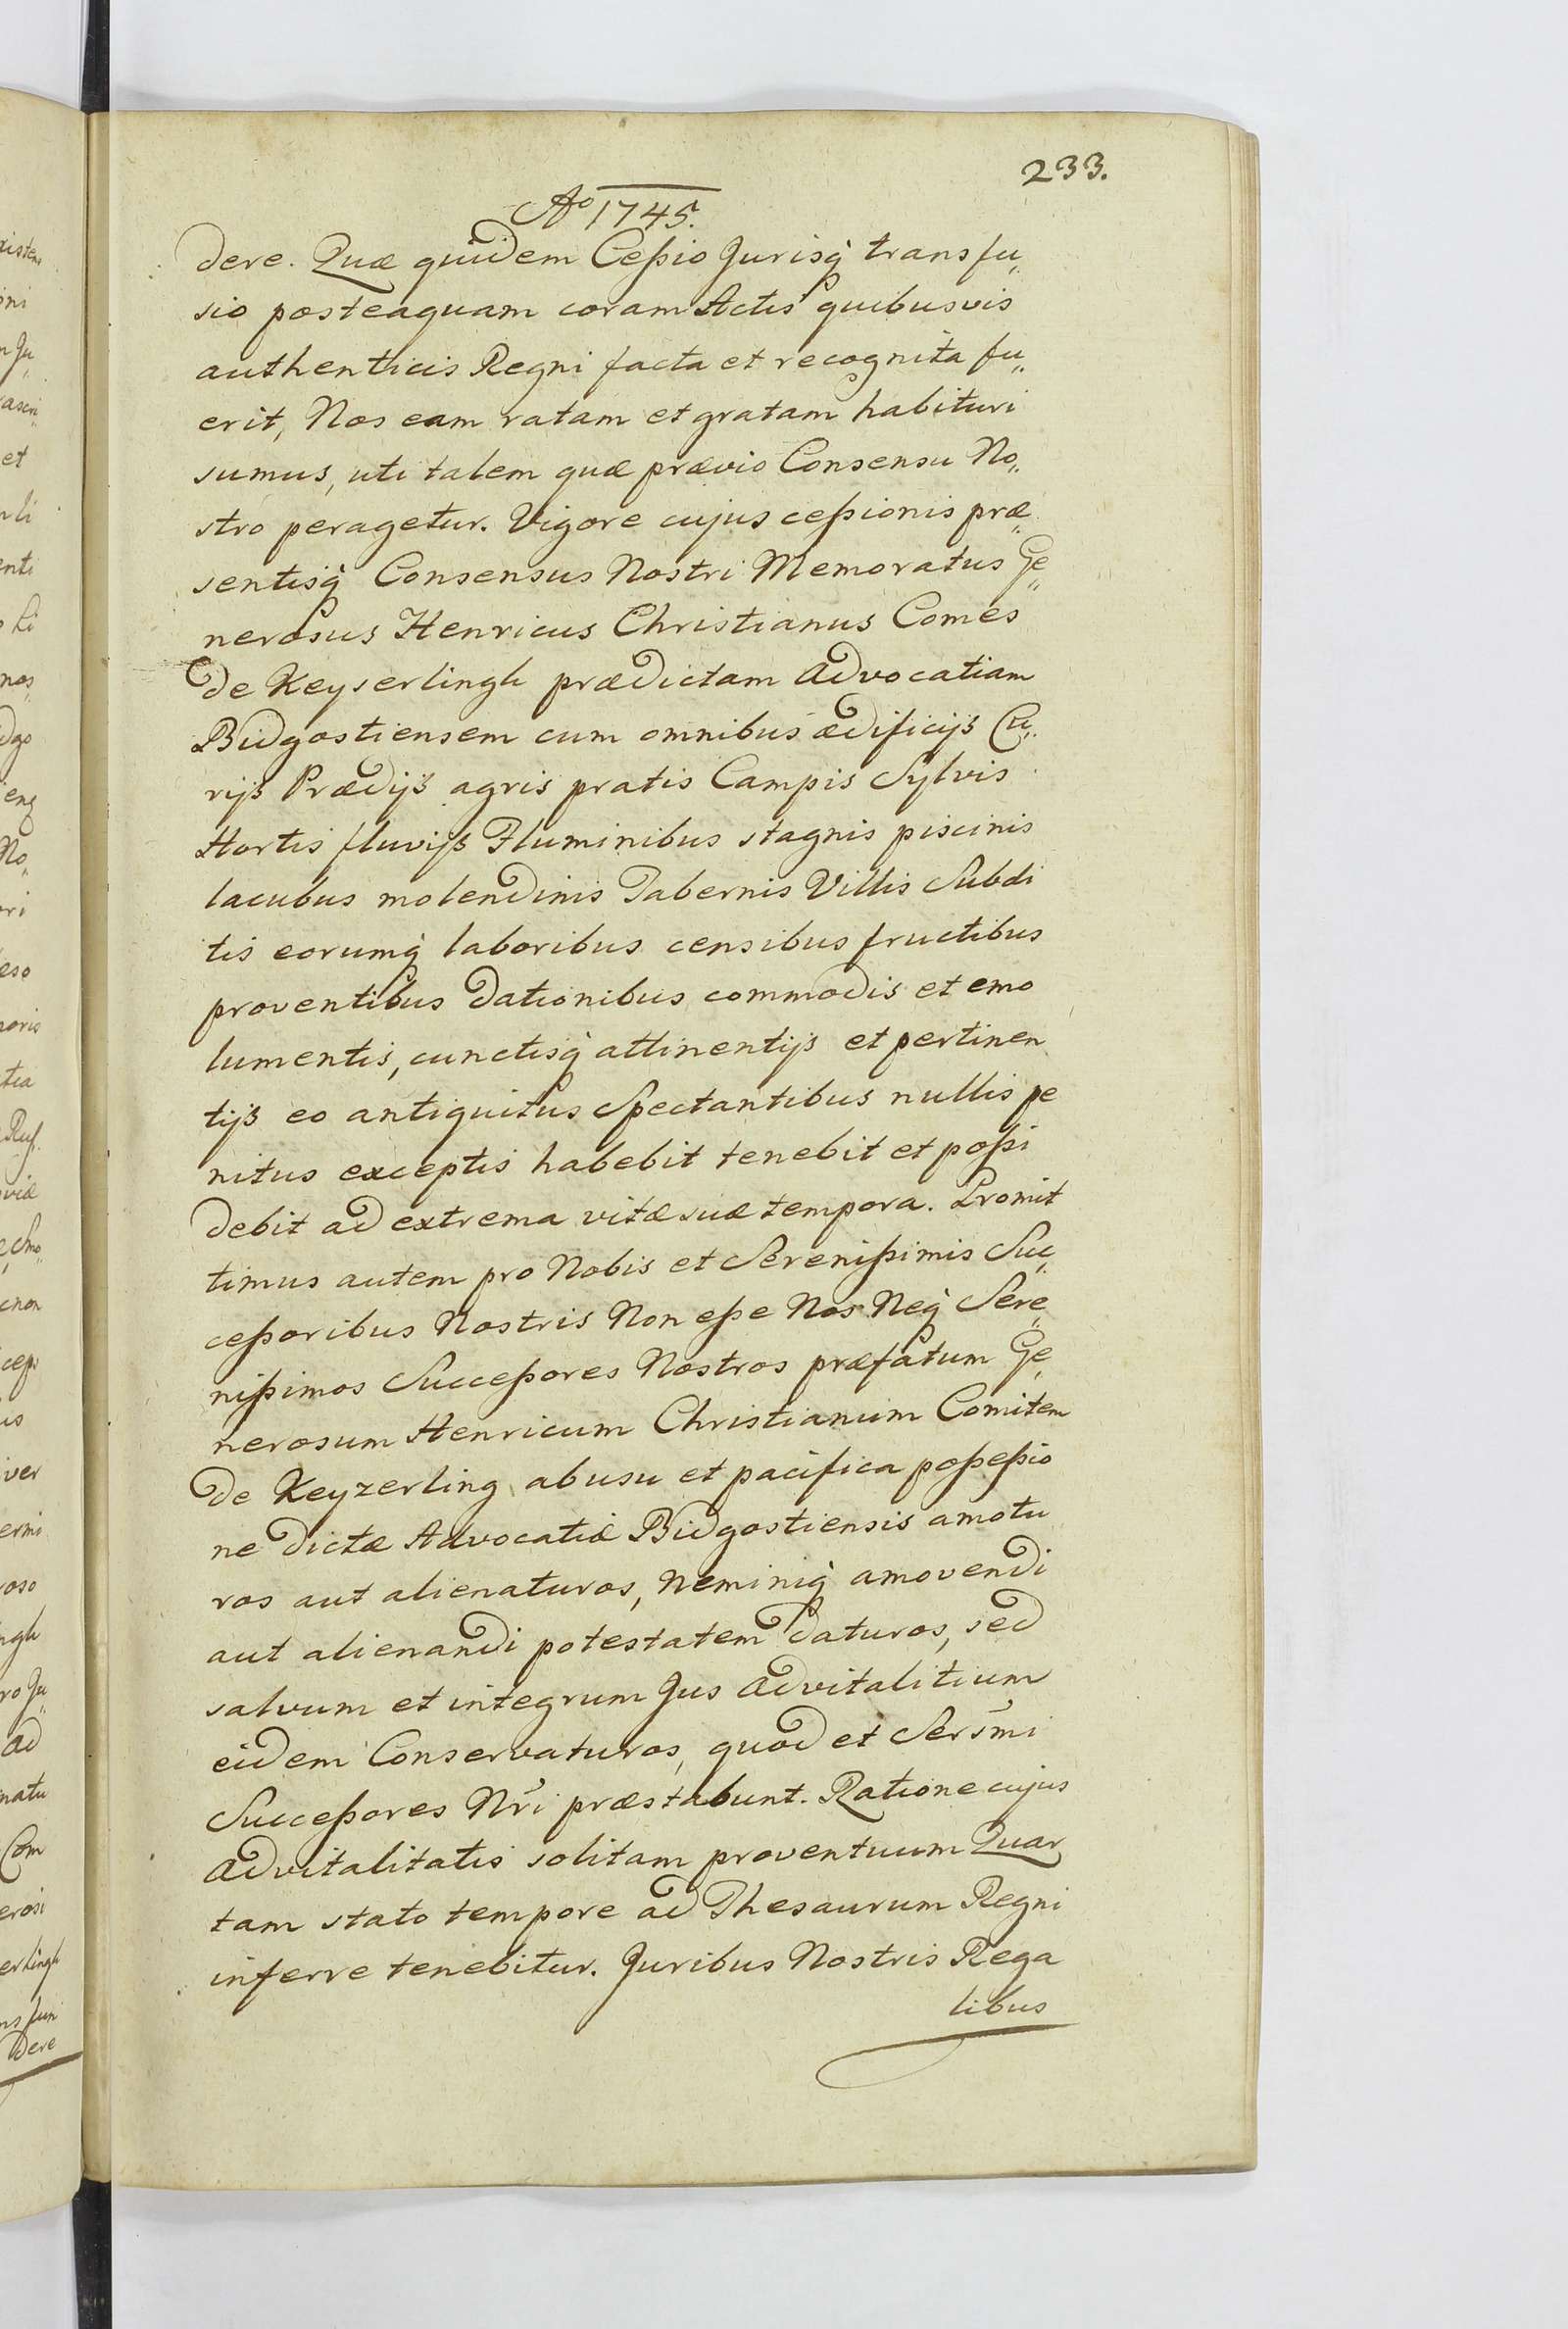 233.
Ao 1745.
dere. Quæ quidem Ceßio Jurisq̃ transfu„
sio posteaquam coram Actis quibusvis
authenticis Regni facta et recognita fu„
erit, Nos eam ratam et gratam habituri
sumus, uti talem quæ prævio Consensu No„
stro peragetur. Vigore cujus ceßionis præ„
sentisq̃ Consensus Nostri Memoratus Ge„
nerosus Henricus Christianus Comes
de Keyserlingk prædictam Advocatiam
Bidgostiensem cum omnibus ædificijs Cu„
rijs Prædijs agris pratis Campis Sylvis
Hortis fluvijs Fluminibus stagnis piscinis
lacubus molendinis Tabernis Villis Subdi
tis eorumq̃ laboribus censibus fructibus
proventibus dationibus commodis et emo
lumentis, cunctisq̃ attinentijs et pertinen
tijs eo antiquitus Spectantibus nullis pe
nitus exceptis habebit tenebit et poßi
debit ad extrema vitæ suæ tempora. Promit
timus autem pro Nobis et Sereni߃imis Suc„
ceßoribus Nostris Non eße Nos Neq̃ Sere„
nißimos Succeßores Nostros præfatum Ge„
nerosum Henricum Christianum Comitem
de Keyzerling ab usu et pacifica poßeßio
ne dictæ Advocatiæ Bidgostiensis amotu
ros aut alienaturos, Neminiq̃ amovendi
aut alienandi potestatem daturos, sed
salvum et integrum Jus advitalitium
eidem Conservaturos, quod et Sersm̃i
Succeßores Nr̃i præstabunt. Ratione cujus
advitalitatis solitam proventuum Quar„
tam stato tempore ad Thesaurum Regni
inferre tenebitur. Juribus Nostris Rega
libus